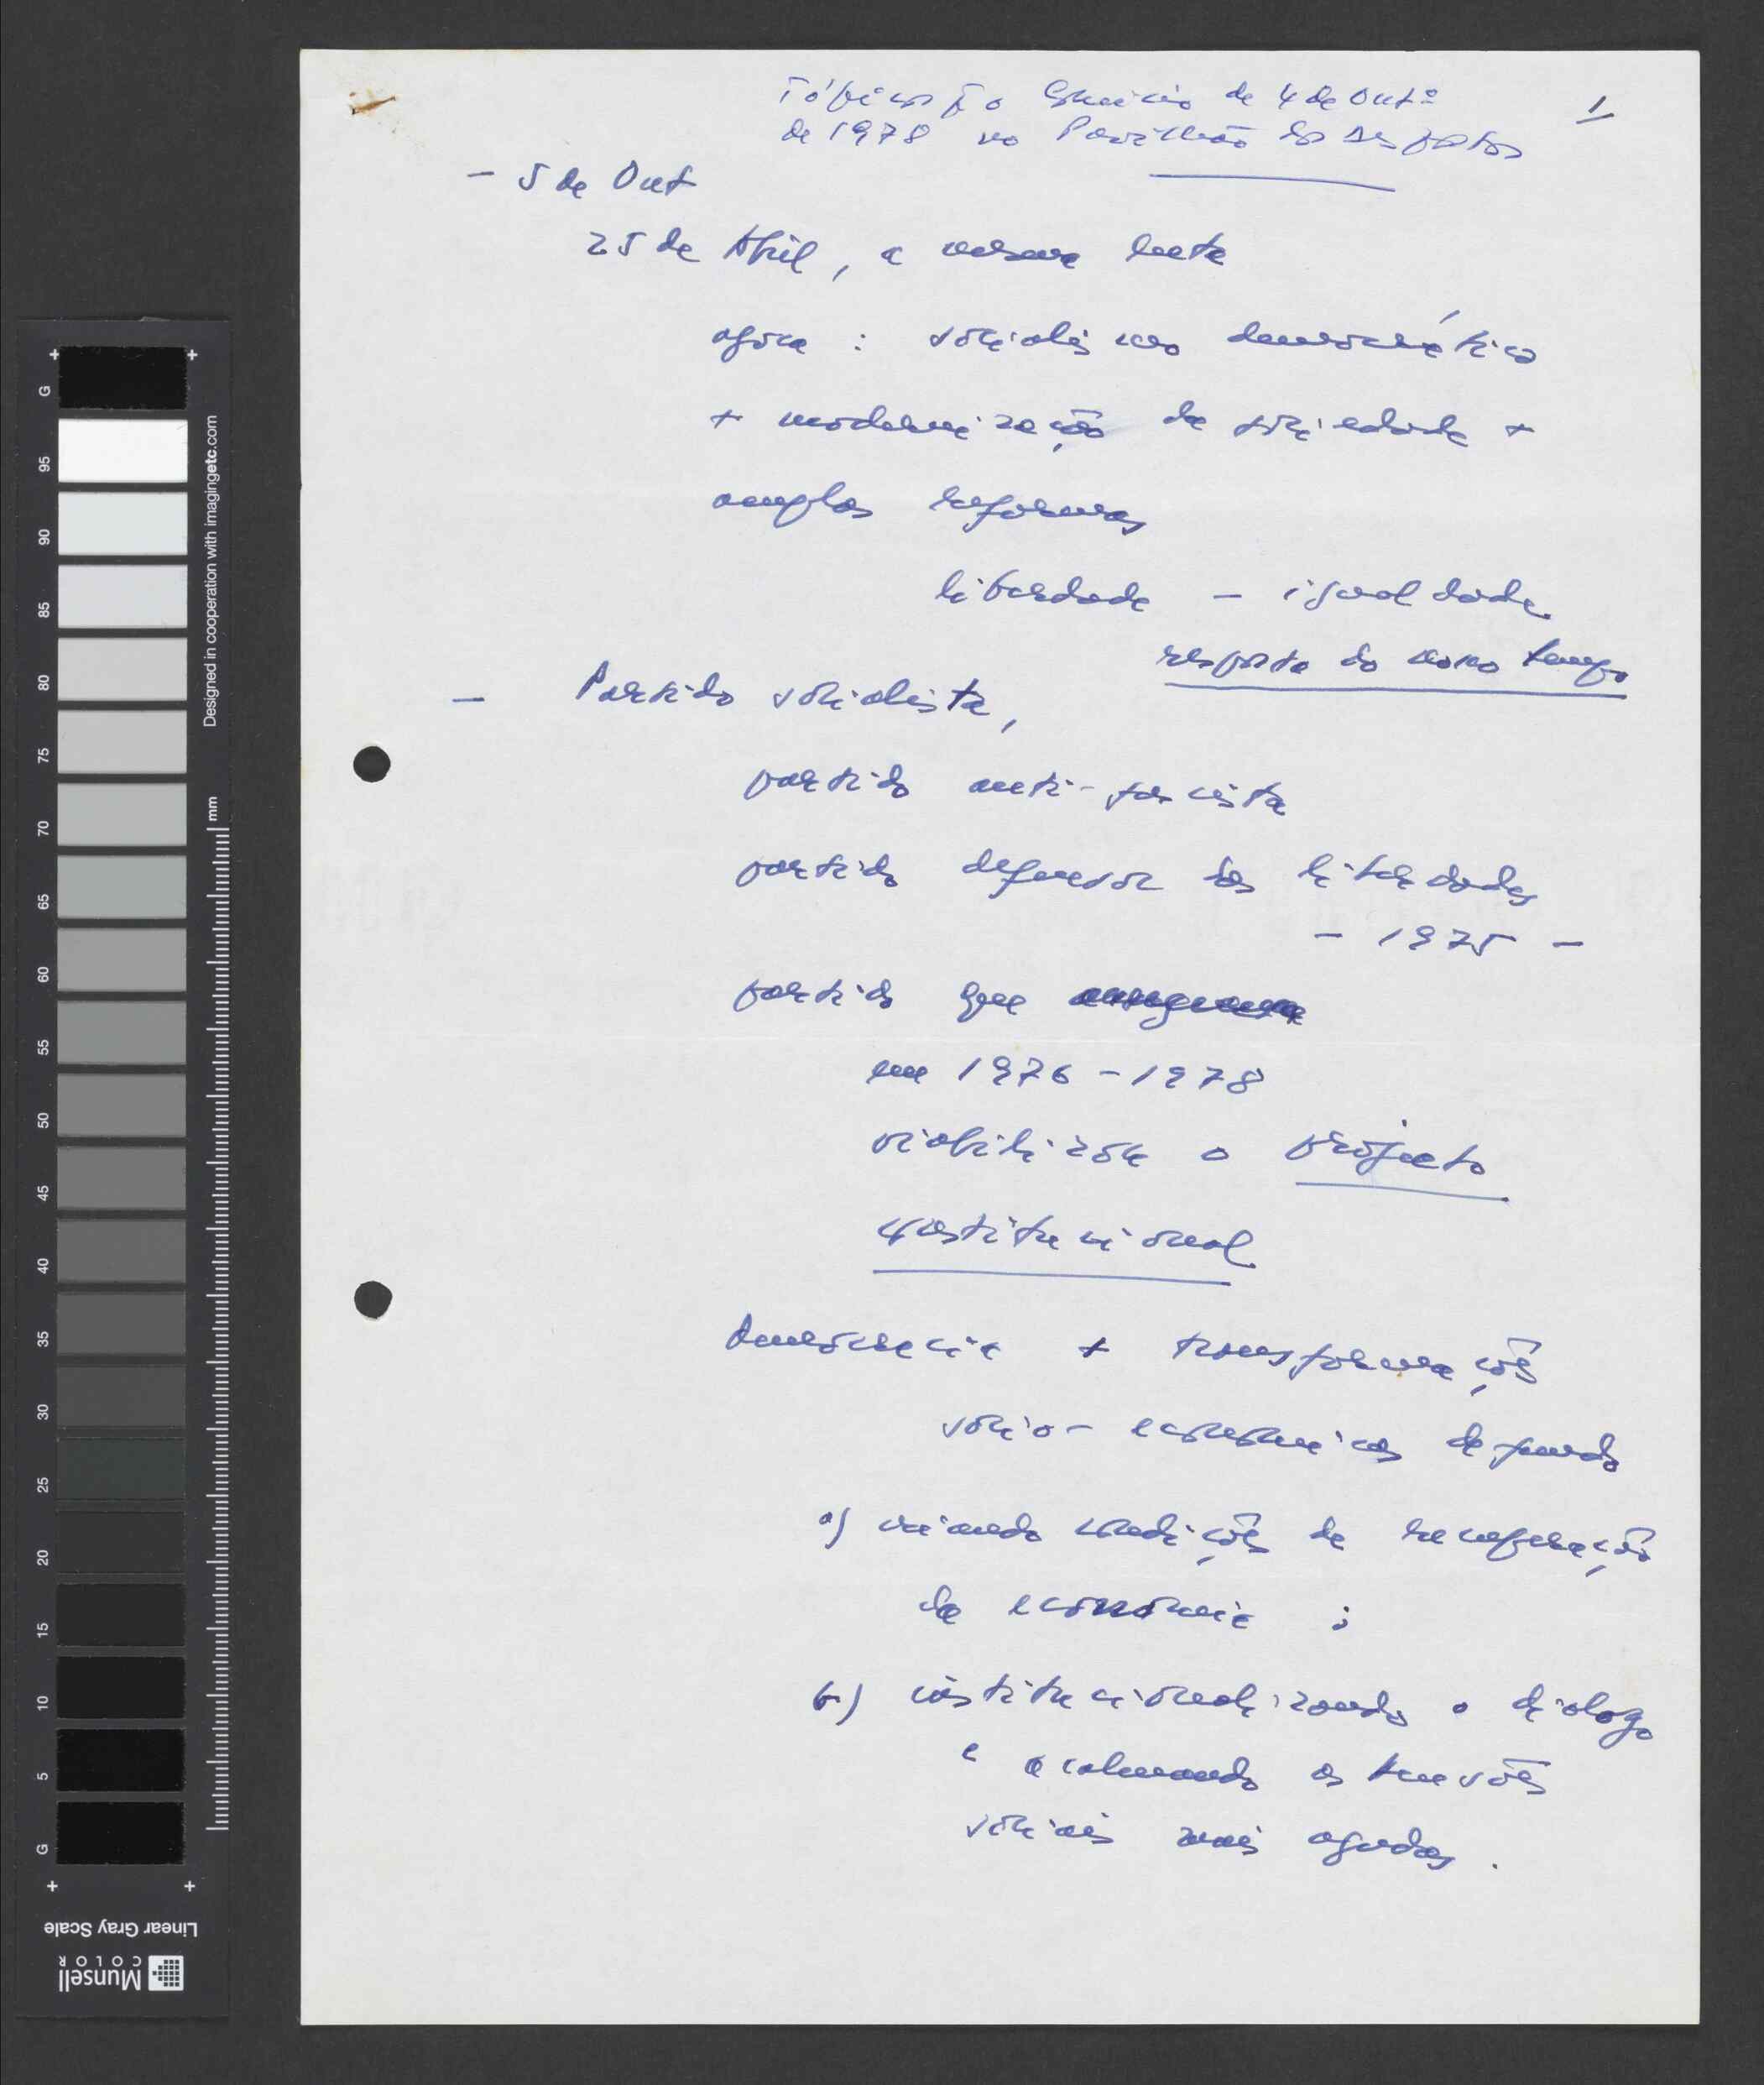 Tópicos p o Comício de 4 de Outº
1
de 1978 no Pavilhão dos Desportos
- 5 de Out
25 de Abril, a mesma luta
agora : socialismo democrático
+ modernização da sociedade +
amplas reformas
liberdade - igualdade
resposta do nosso tempo
- Partido socialista,
partido anti-fascista
partido defensor das liberdades
- 1975 -
partido que
em 1976 - 1978
viabilizou o projecto
constitucional
Democracia + transformações
sócio-económicas de fundo
a) criando condições de recuperação
da economia ;
b) institucionalizando o diálogo
e acalmando as tensões
sociais mais agudas .
G
95
90
85
80
75
70
65
60
55
50
45
40
35
30
25
20
15
10
5
G
mm
Designed in cooperation with imagingetc.com
Linear Gray Scale
Munsell
COLOR